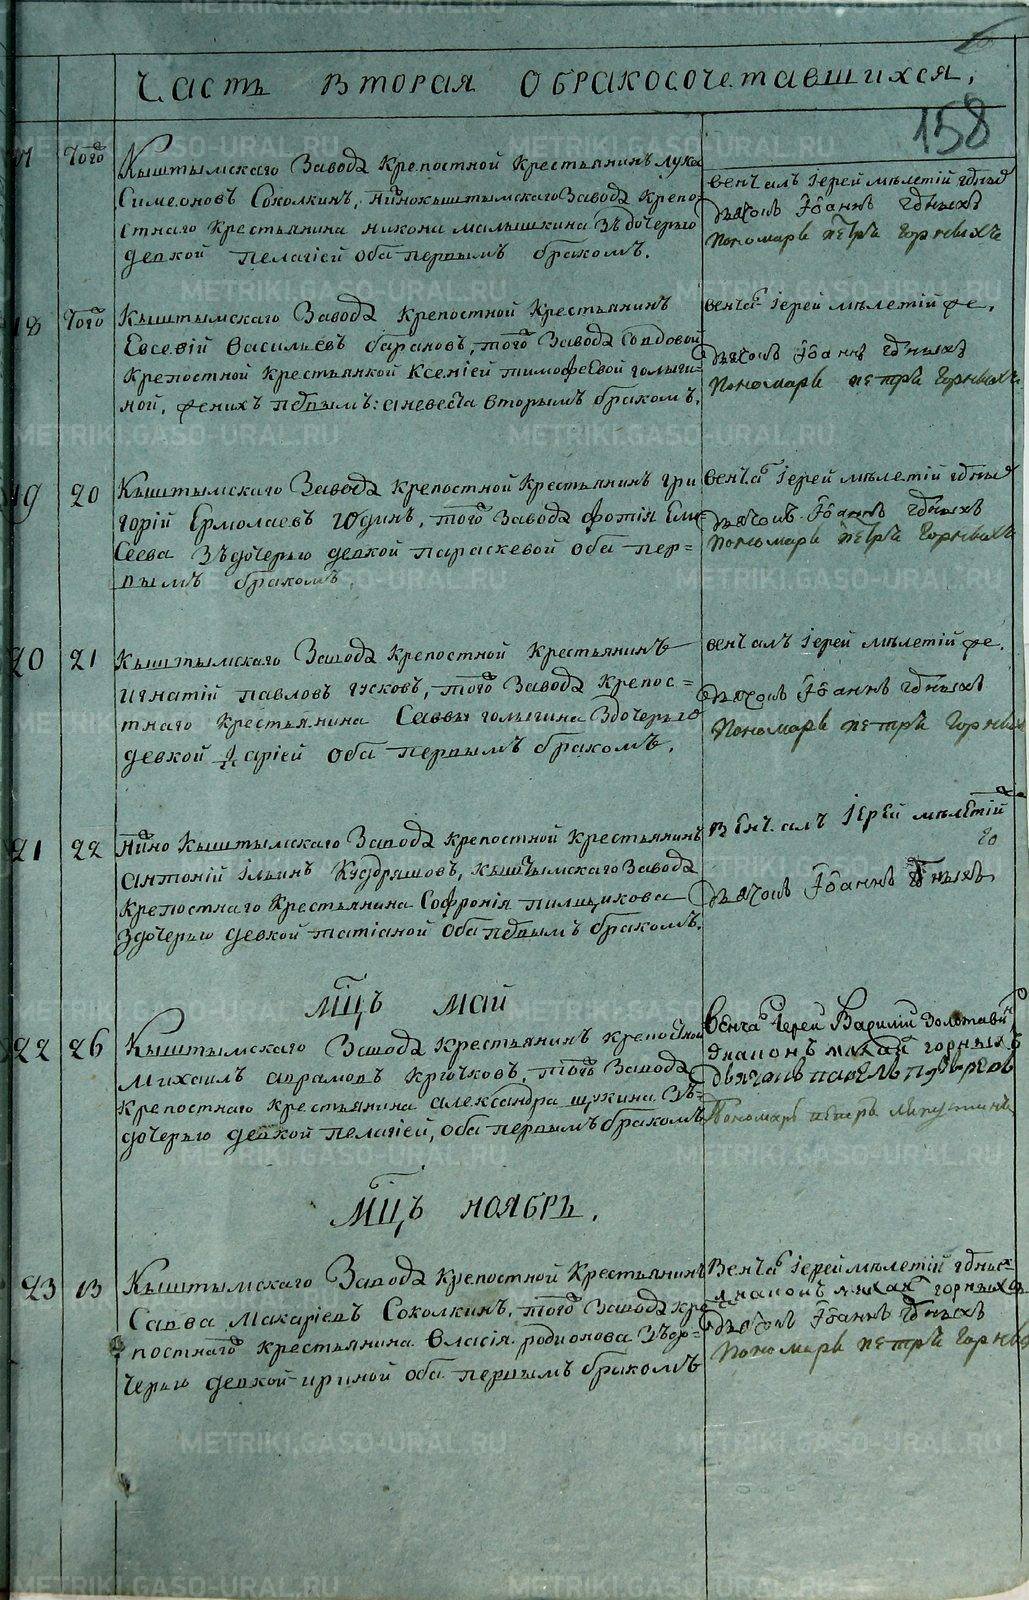 Часть вторая о бракосочетавшихся.
158
того
Кыштымскаго Завода крепостной крестьянинъ лука
Симеоновъ Соколкинъ, Нижнокыштымскаго Завода крепо
стнаго крестьянина никона малышкина Зъ дочерью
девкой пелагіей оба первымъ бракомъ.
венчалъ іерей мѣлетій
дьячокъ Іоаннъ
пономарь петръ горныхъ
18 того
Кыштымскаго Завода крепостной крестьянинъ
Евсевій Васильевъ барановъ, того Завода вдовой
крепостной крестьянкой Ксеніей тимофеевой голыги
ной, жених первымъ: а невеста вторымъ бракомъ.
венча іерей мѣлетій
дьячокъ Іоаннъ
пономарь петръ горныхъ
19 20
Кыштымскаго Завода крепостной крестьянинъ гри
горій Ермолаевъ годинъ, того Завода фотія Ели
сеева Зъ дочерью девкой параскевой оба пер=
вымъ бракомъ.
венча іерей мѣлетій
дьячокъ Іоаннъ
пономарь петръ горныхъ
20 21
Кыштымскаго Завода крепостной крестьянинъ
игнатій павловъ гусковъ, того Завода крепос=
тнаго крестьянина Саввы голыгина Здочерью
девкой дарьей оба первымъ бракомъ.
венчалъ іерей мѣлетій
дьячокъ Іоаннъ
пономарь петръ горных
21 22
Нижно Кыштымскаго Завода крепостной крестьянинъ
антоній ильинъ Кудряшовъ, Кыштымскаго Завода
крепостнаго крестьянина Софронія пилщикова
Здочерью девкой татіаной оба первымъ бракомъ.
венчалъ іерей мѣлетій
дьячокъ Іоаннъ
мцъ май
22 26
Кыштымскаго Завода крестьянинъ крепостной
михаилъ аврамовъ крючковъ, того Завода
крепостнаго крестьянина александра щукина Зъ=
дочерью девкой пелагіей, оба первымъ бракомъ
венча іерей Василій
диаконъ михаи горныхъ
дьячокъ павелъ
пономарь петръ
мцъ ноябрь.
23 13
Кыштымскаго Завода крепостной крестьянинъ
Савва макаріевъ Соколкинъ, того Завода кре
постнаго крестьянина Власія родионова Зъ до=
черью девкой ириной оба первымъ бракомъ
венча іерей мѣлетій
диаконъ михаи горныхъ
дьячокъ Іоаннъ
пономарь петръ горных
METRIKI.GASO-URAL.RU